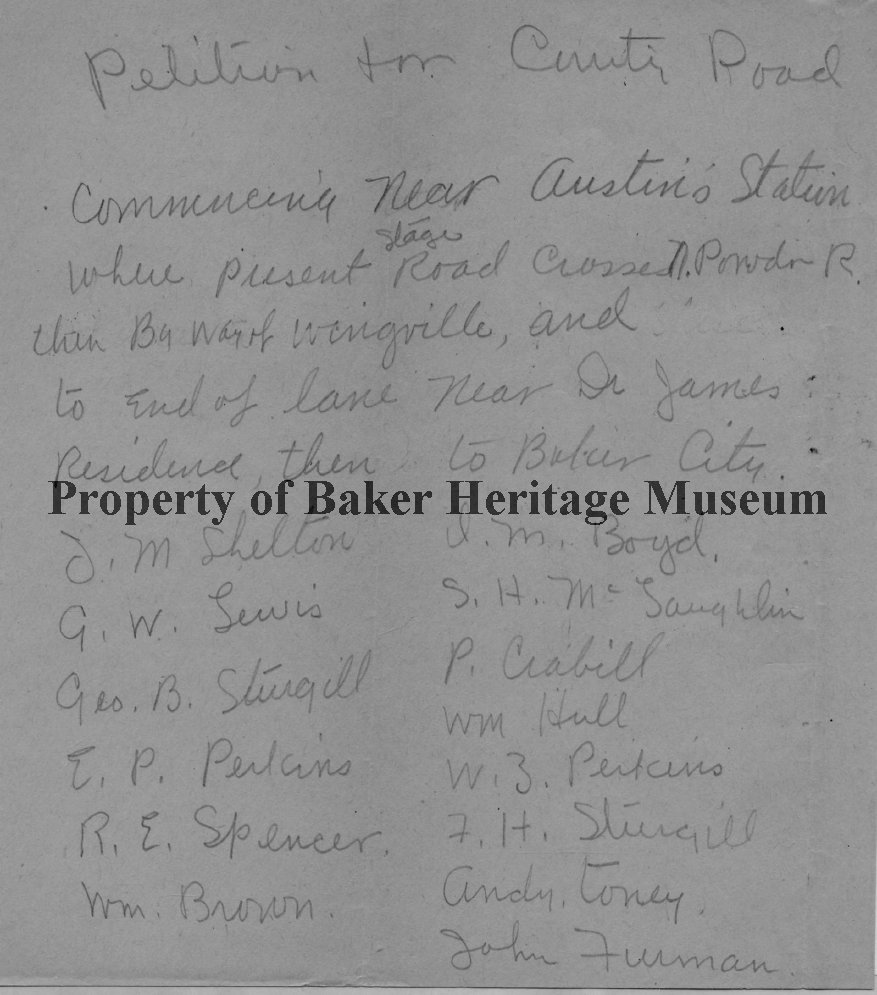 Petition for County Road
Commencing Near Austin's Station
stage
Where present Road Crosses N. Powder R.
then By Way of Wingville, and
to End of lane Near Dr James
Residence, then to Baker City.
Property of Baker Heritage Museum
J. M Shelton
G. W. Lewis
Geo. B. Sturgill
E. P. Perkins
R. E. Spencer.
Wm. Brown.
I. M. Boyd.
S. H. Mc Laughlin
P. Crabill
Wm Hull
W. Z. Perkins
F. H. Sturgill
Andy. Toney.
John Furman